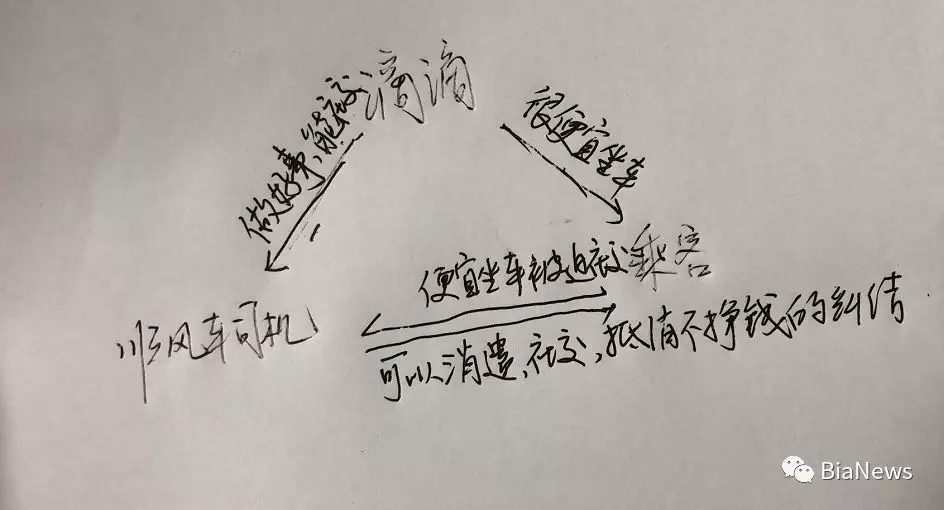 滴滴
做好事,能社交
很便宜坐车
便宜坐车被迫社交
乘客
顺风车司机
可以消遣,社交,抵消不挣钱的纠结
BiaNews